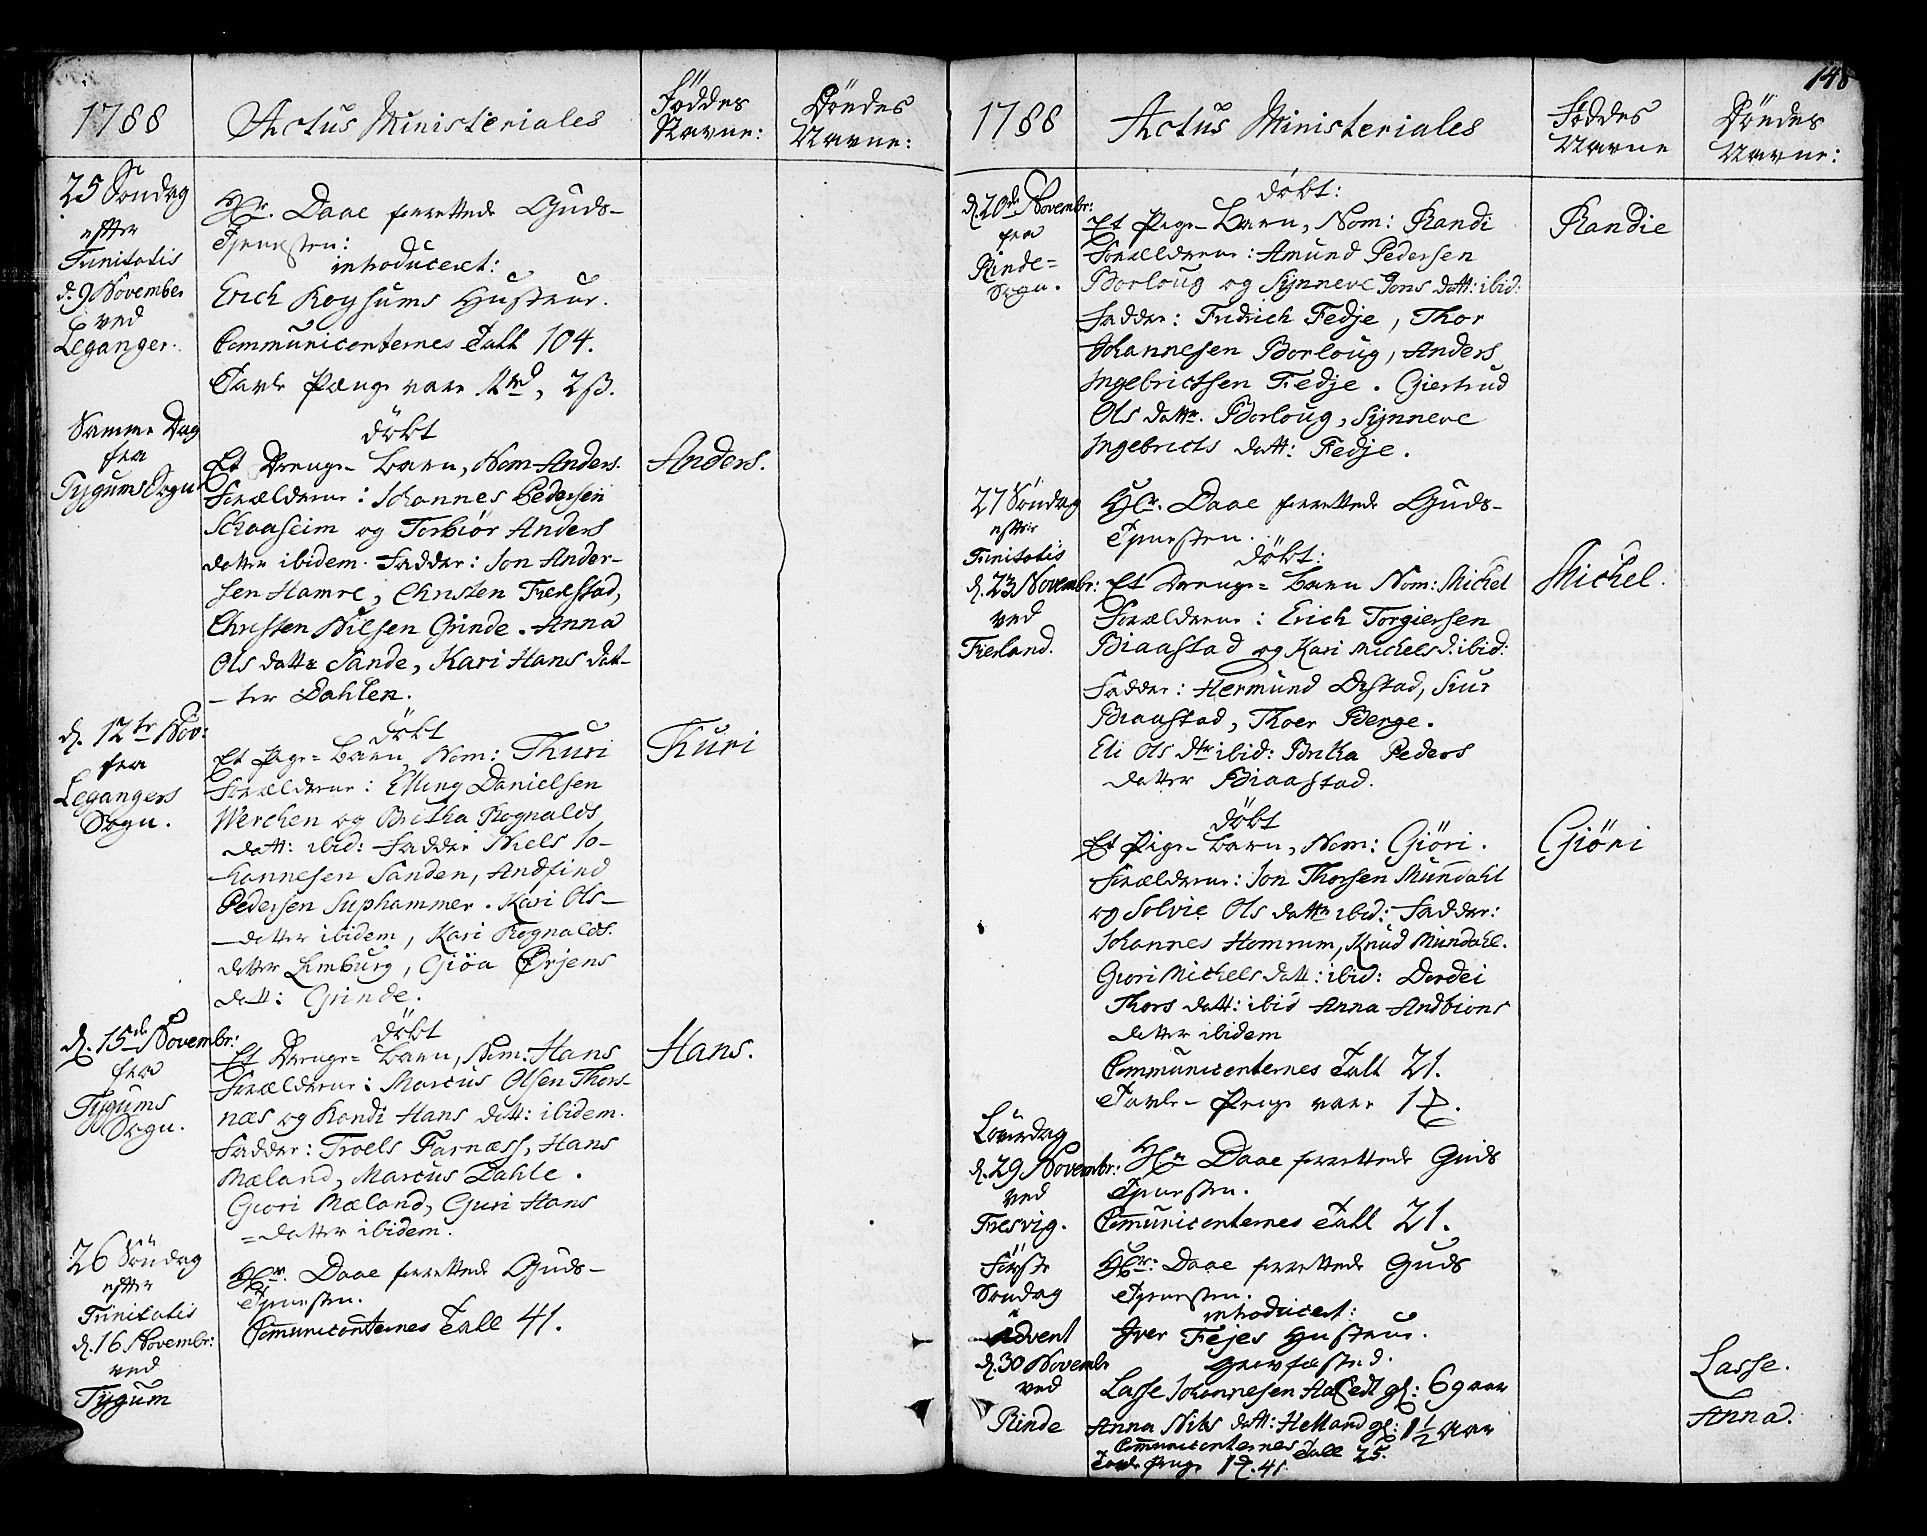 1788
Actus Ministeriales
Föddes
Navne:
Döedes
Navne:
25 Söndag
efter
Trinitatis
d. 9 November
ved
Leganger.
Hr. Daae forrettede Guds-
Tjenesten:
introduceret:
Erich Røysums Hustrue.
Communicenternes Tall 104.
Tavle Penge vare 2 ß.
Samme Dag
fra
Tygums Sogn
döbt
Et Drenge-Barn, Nom. Anders.
Forældrene: Johannes Pedersen
Schaasheim og Torbiör Anders
datter ibidem. Fadder: Jon Ander-
sen Hamre, Christen Frestad,
Christen Nilsen Grinde. Anna
Ols datter Sande, Kari Hans dat-
-ter Dahlen.
Anders.
d. 12te Nov:
fra
Legangers
Sogn.
döbt
Et Pige-Barn, Nom: Thuri
Forældrene: Elling Danielsen
Werchen og Britha Rognalds
datt: ibid: Fadder Niels Jo-
hannesen Sanden, Andfind
Pedersen Suphammer. Kari Ols-
-datter ibidem, Kari Rognalds
datter Limburg, Giöa Ørjens
datt: Grinde.
Thuri
d. 15de Novembr:
fra
Tygums
Sogn.
döbt
Et Drenge-Barn, Nom. Hans
Forældrene: Marcus Olsen Thors-
næs og Randi Hans datt: ibidem.
Fadder: Troels Farnæss, Hans
Mæland, Marcus Dahle.
Giori Mæland, Guri Hans
=datter ibidem.
Hans.
26 Söndag
efter
Trinitatis
d. 16 Novembr:
ved
Tygum
Hr. Daae forrettede Guds-
Tjenesten.
Communicenternes Tall 41.
148
1788
Actus Ministeriales
Föddes
Navne
Döedes
Navne:
d. 20de Novembr:
fra
Rinde=
Sogn.
döbt:
Et Pige-Barn, Nom: Randi
Forældrene: Amund Pedersen
Borloug og Synneve Jons datt: ibid:
Fadder: Fridrich Fedje, Thor
Johannesen Borloug, Anders
Ingebrictsen Fedje. Giertrud
Ols dattr. Borloug, Synneve
Ingebricts datt: Fedje.
Randie
27 Söndag
efter
Trinitatis
d. 23 Novembr:
ved
Fierland.
Hr. Daae forrettede Guds-
Tjenesten.
döbt:
Et Drenge=Barn Nom: Michel
Forældrene: Erich Torgiersen
Biaastad og Kari Michels d: ibid:
Fadder: Hermund Distad, Siur
Biaastad, Thoer Berge.
Eli Ols dtr ibid: Britha Peders
datter Biaastad.
Michel.
döbt
Et Pige-Barn, Nom: Giöri.
Forældrene: Jon Thorsen Mundahl
og Solvie Ols dattr ibid: Fadder:
Johannes Homrum, Knud Mundahl.
Giori Michels datt: ibid: Dordei
Thors datt: ibid Anna Andbions
datter ibidem
Communicenternes Tall 21.
Tavle-Penge vare
Giöri
Löverdag
d. 29 Novembr:
ved
Fresvig.
Hr Daae forrettede Guds
Tjenesten.
Communicenternes Tall 21.
Förste
Söndag
i
Advent
d. 30 Novembr
ved
Rinde
Hr: Daae forrettede Guds
Tjenesten.
introducert:
Iver Fejes Hustrue.
Gravfæsted.
Lasse Johannesen gl: 69 aar
Anna Nils datt: Hetland gl: 1 1/2 Aar
Communicenternes Tall 25.
Tavle Penge 41
Lasse.
Anna.